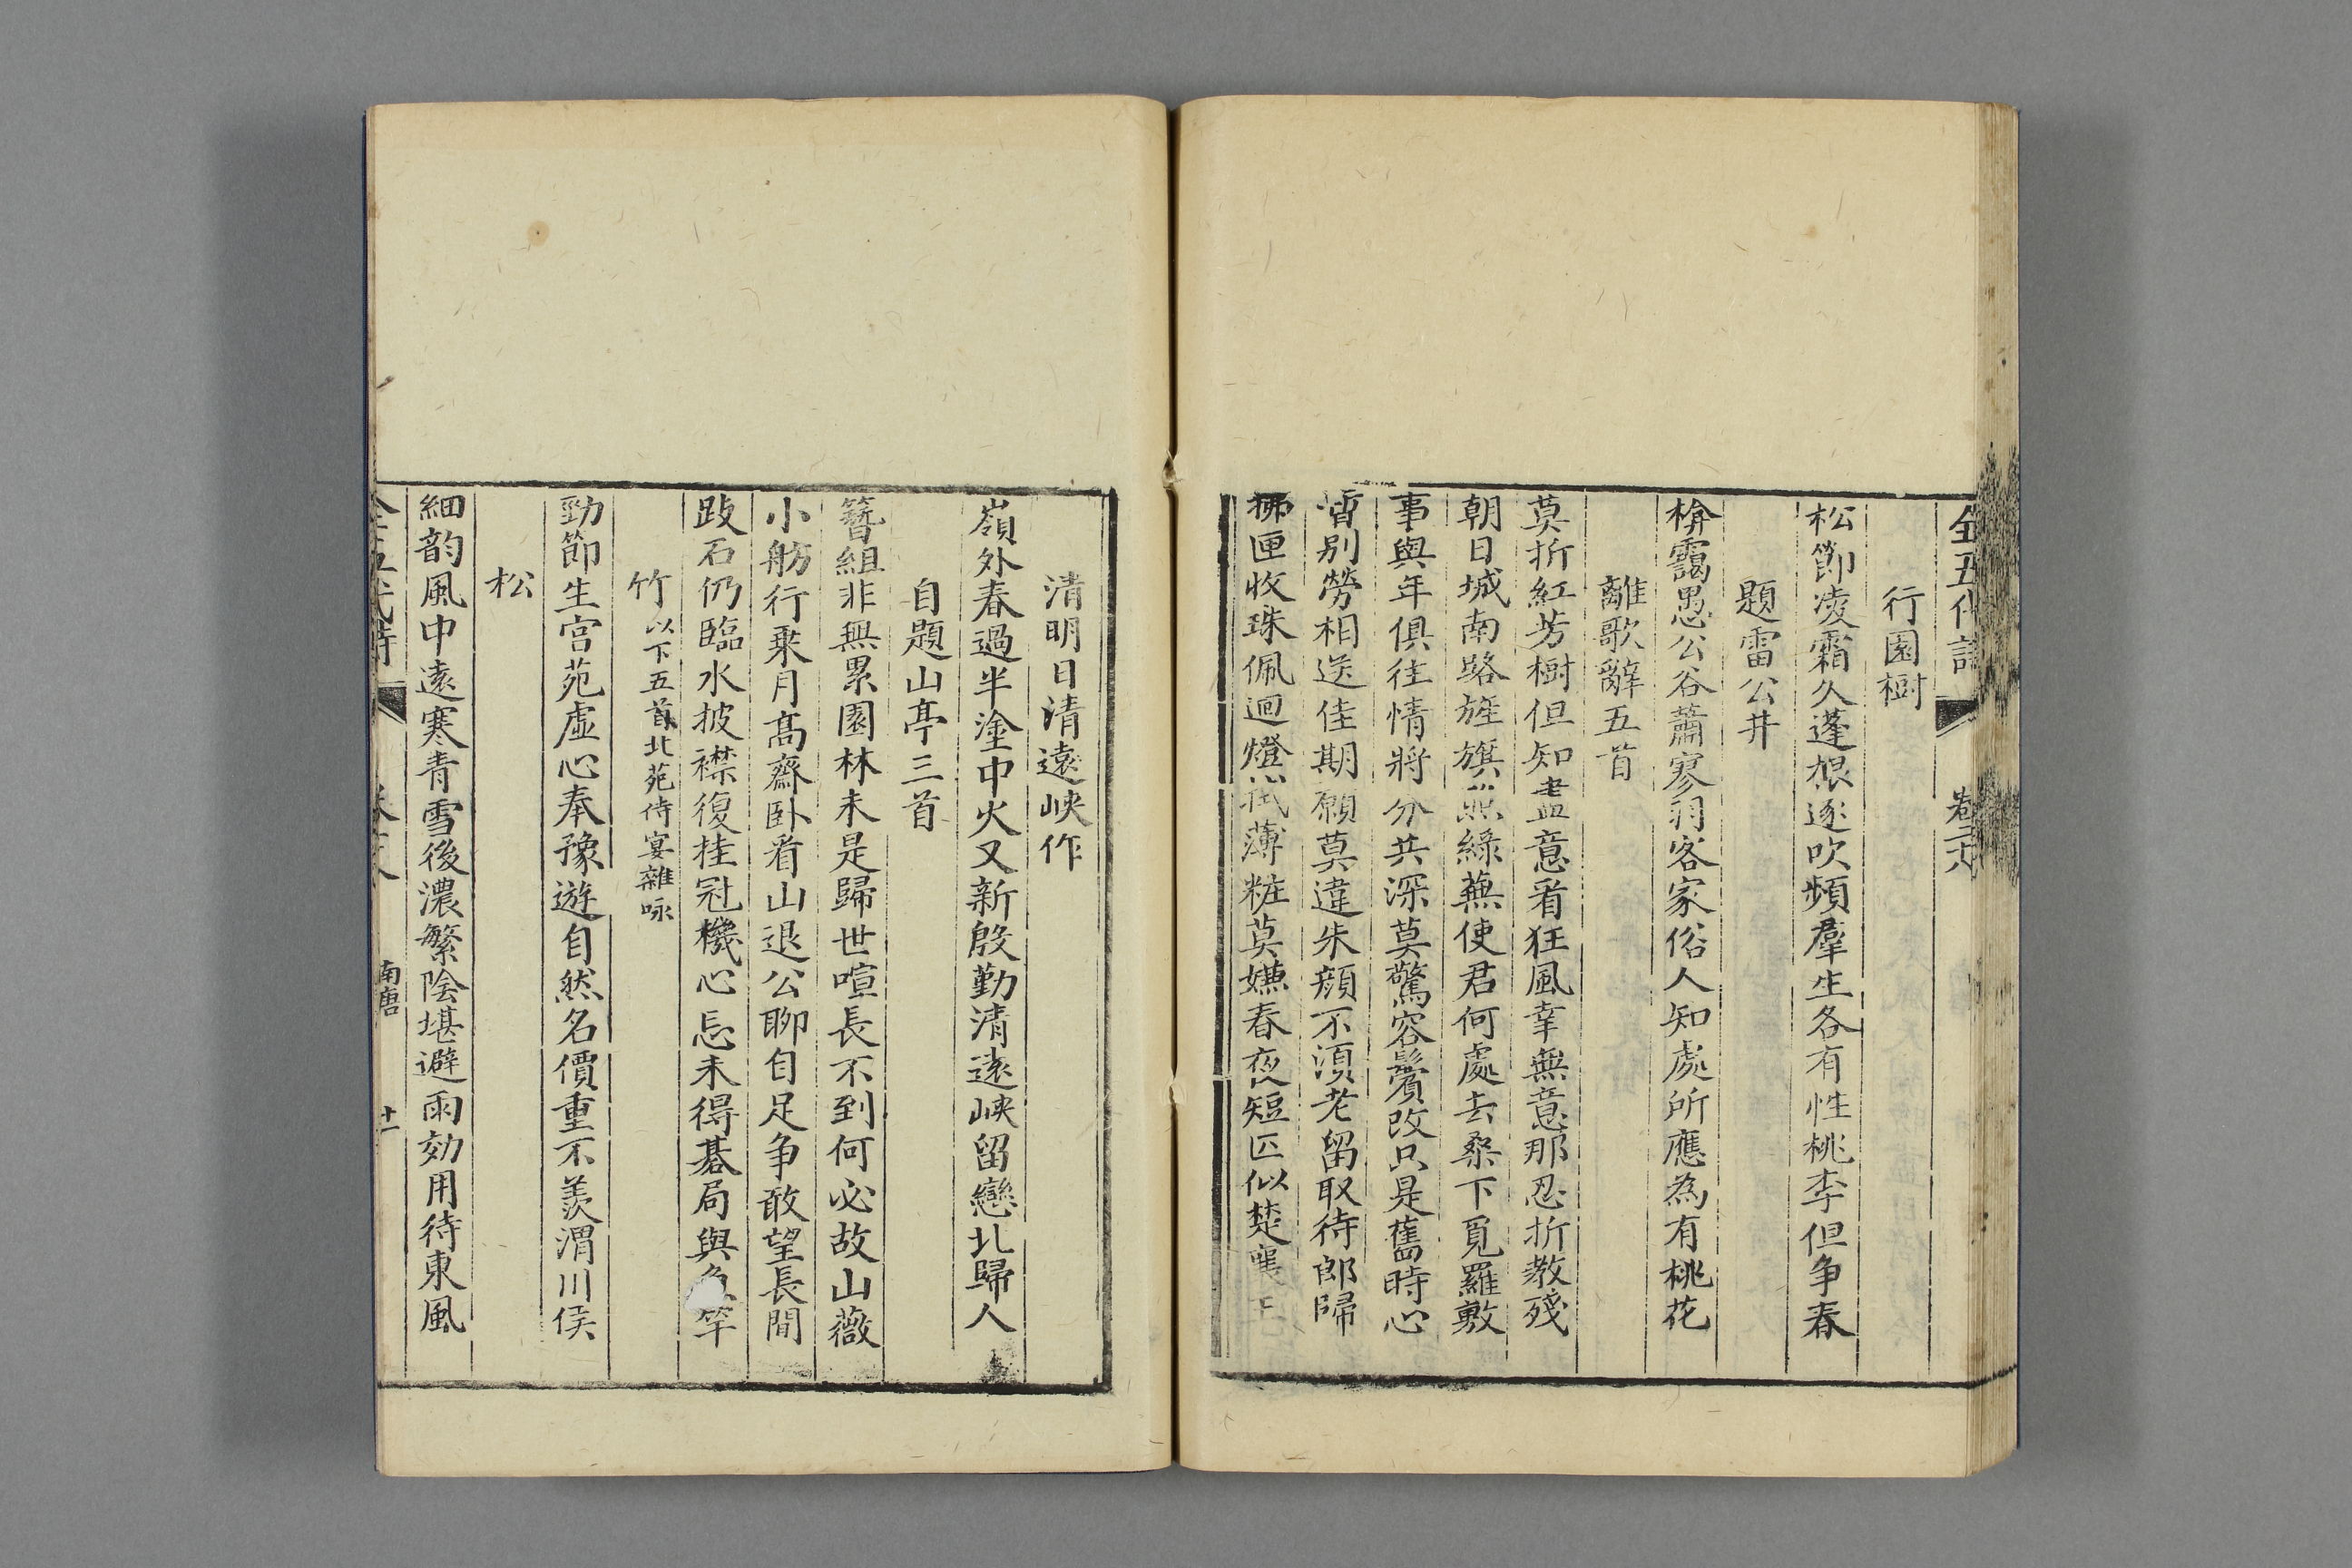 全五代詩 卷二十八
行園樹
松節凌霜久蓬根逐吹頻羣生各有性桃李但争春
題雷公井
揜靄愚公谷蕭寥羽客家俗人知處所應為有桃花
離歌辭五首
莫折紅芳樹但知盡意看狂風幸無意那忍折教殘
朝日城南路旌旗照綠蕪使君何處去桑下覓羅敷
事與年俱往情將分共深莫驚容鬢改只是舊時心
暫別勞相送佳期願莫違朱顏不須老留取待郎歸
拂匣收珠佩迴燈拭薄粧莫嫌春夜短匹似楚襄王
清明日清遠峽作
嶺外春過半塗中火又新殷勤清遠峽留戀北歸人
自題山亭三首
簪組非無累園林未是歸世喧長不到何必故山薇
小舫行乘月高齋卧看山退公聊自足争敢望長閒
跂石仍臨水披襟復挂冠機心忘未得碁局與魚竿
竹以下五首北苑侍宴雜咏
勁節生宫苑虛心奉豫遊自然名價重不羨渭川侯
松
細韵風中遠寒青雪後濃繁陰堪避雨効用待東風
全五代詩 南唐 十一